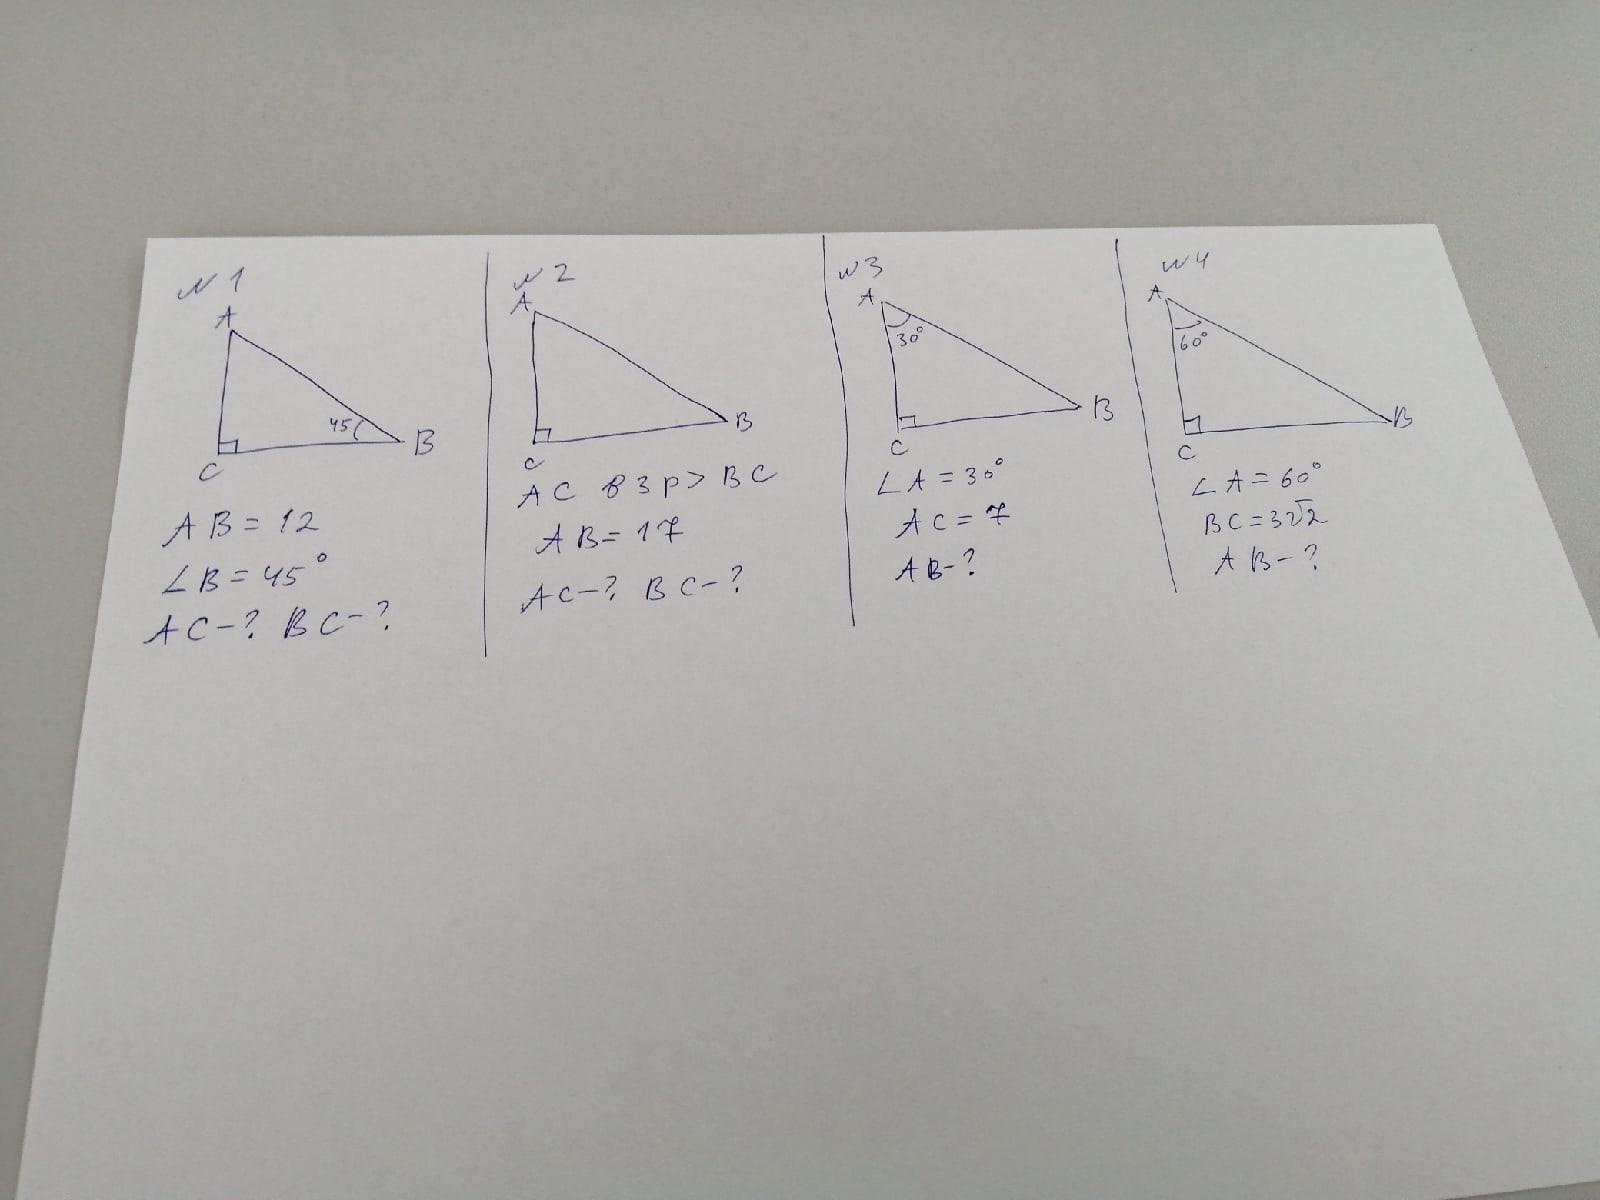 № 1
A
45
C
B
AB = 12
∠B = 45°
AC - ? BC - ?
№ 2
A
B
C
AC в 3 р > BC
AB = 17
AC - ? BC - ?
№ 3
A
30°
B
C
∠A = 30°
AC = 7
AB - ?
№ 4
A
60°
B
C
∠A = 60°
BC = 3√2
AB - ?